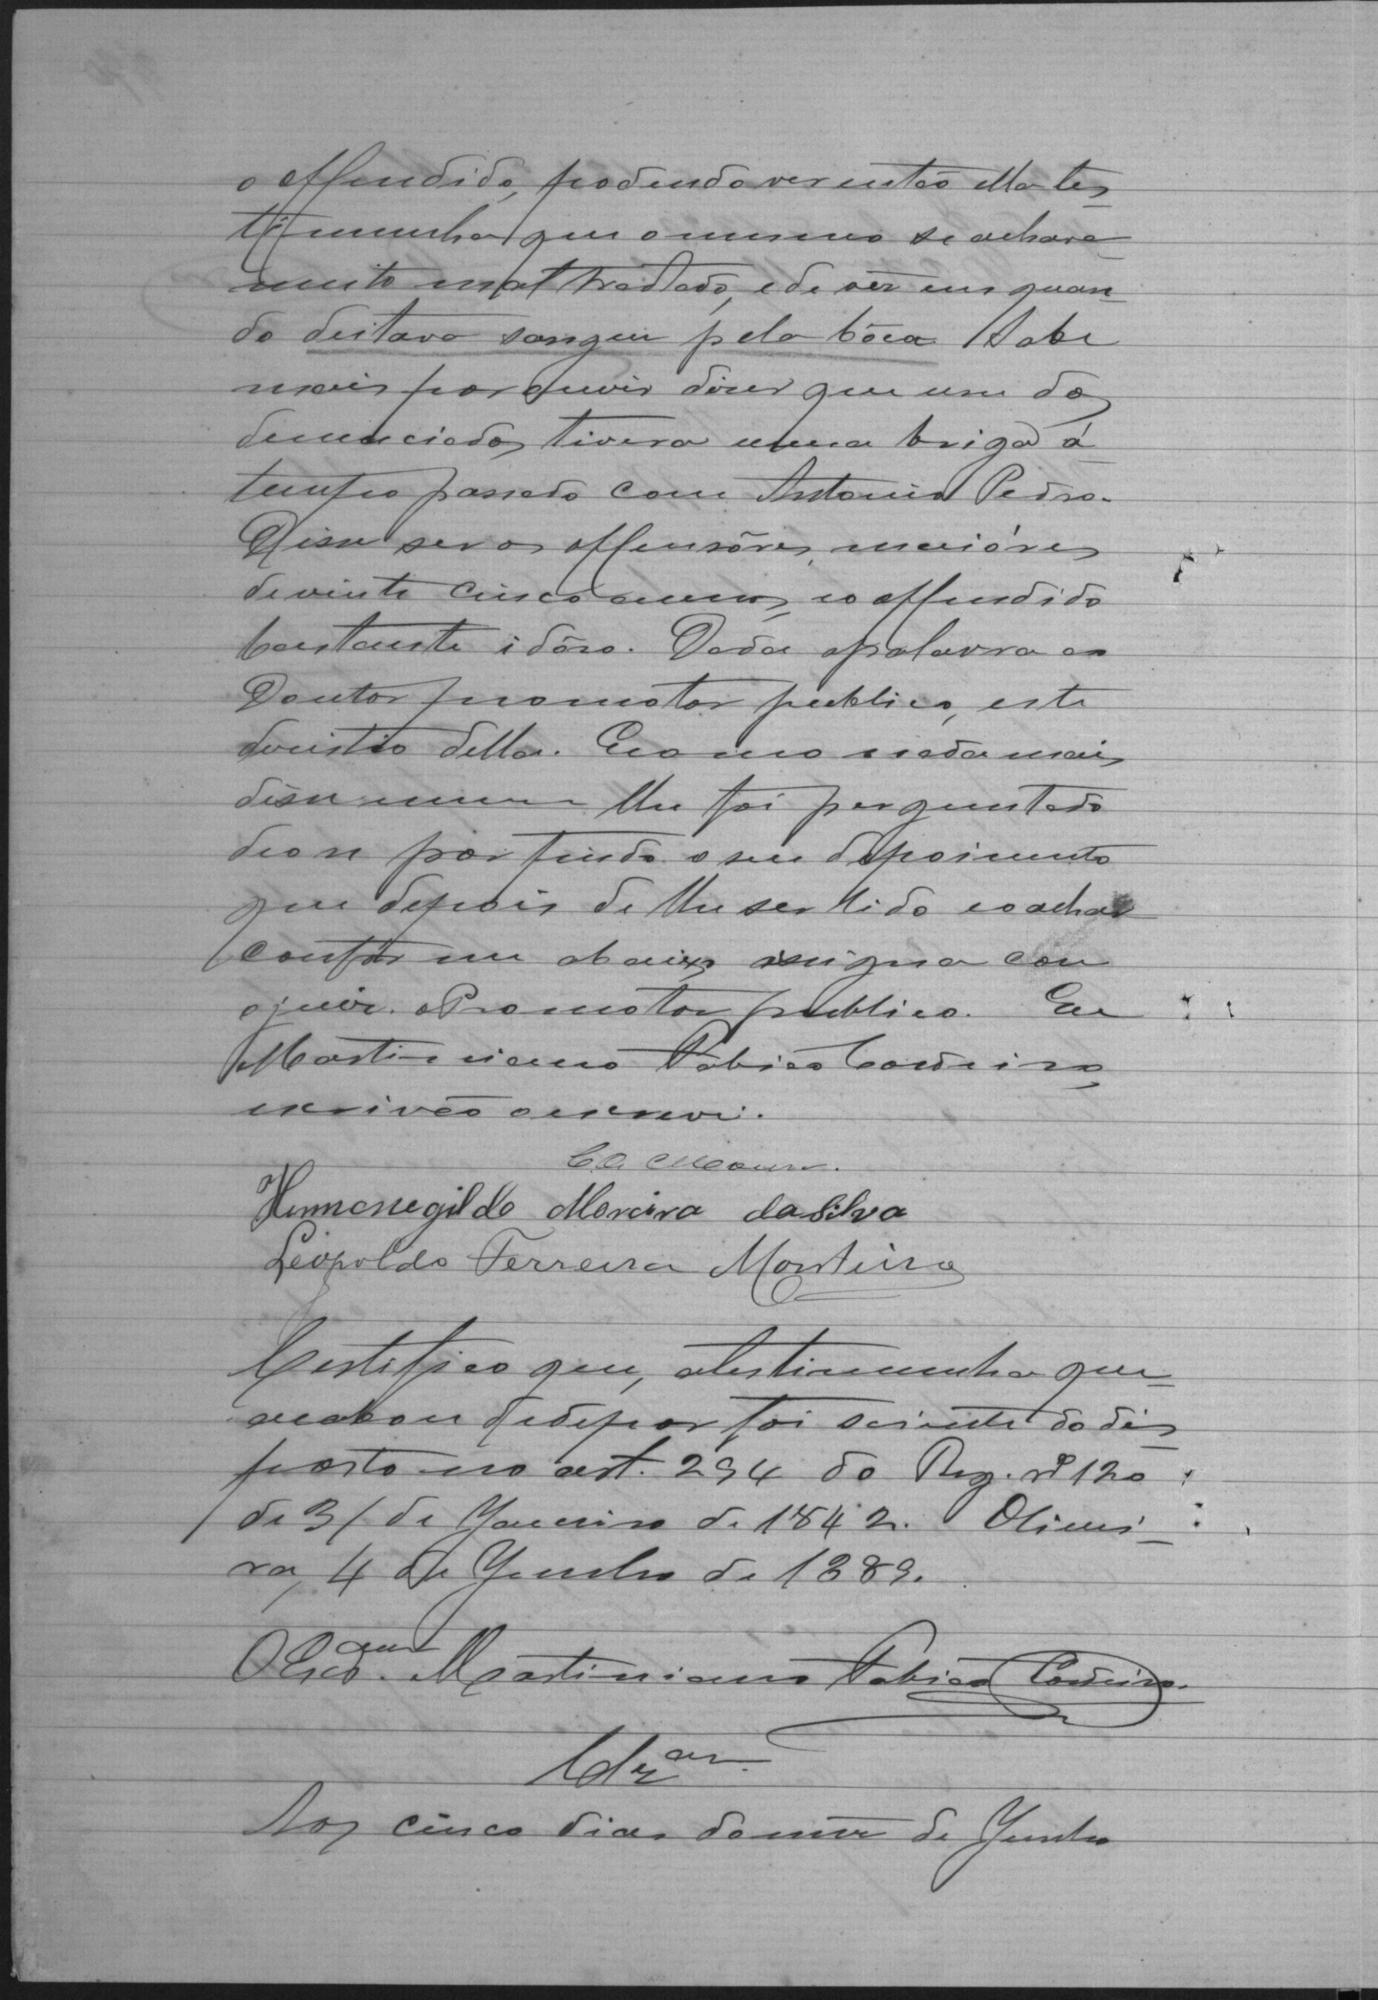 o offendido, podendo ver então ella tes
timunha que o mesmo se achava
muito mal tractado, e de vêr em quan
do deitava sangue pela bôca. Sabe
mais por ouvir dizer que um dos
denunciados tivera uma briga á
tempo passado com Antonio Pedro.
Disse ser os offensôres maióres
de vinte cinco annos, e o offendido
bastante idôso. Dada a palavra ao
Doutor promotor publico, este
desistio della. E como nada mais
disse nem lhe foi perguntado
deo-se por findo o seu depoimento
que depois de lhe ser lido e o achar
conforme abaixo assigna com
o juiz. o Promotor publico. Eu
Martiniano Fabião Cordeiro,
escrivão o escrevi.
Moura.
Hermenegildo Moreira da Silva
Leopoldo Ferreira Monteiro
Certifico que, a testimunha que
acabou de depor foi sciente do dis
posto no art. 294 do Reg. nº 120
de 31 de Janeiro de 1842. Olivei
ra, 4 de Junho de 1889.
O Escam. Martiniano Fabião Cordeiro.
Clzam.
Aos cinco dias do mez de Junho